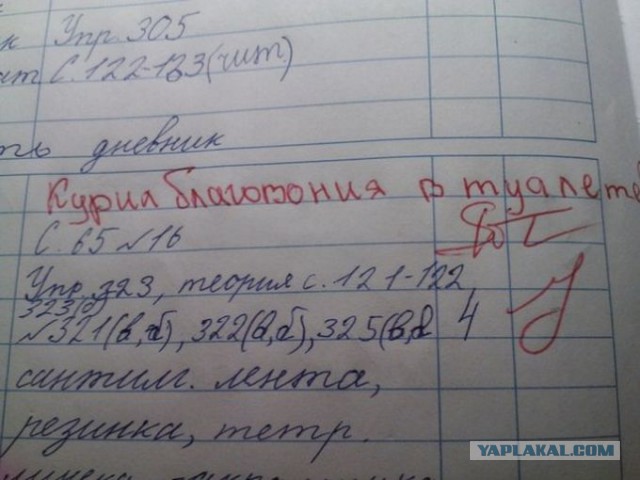 к Упр 305
ат С. 122-123(чит)
ть дневник
Курила благовония в туалете
С. 65 №16
Упр 323, теория с. 121-122
323(б)
№321(в,б), 322(в,б), 325(в, 4
сантим. лента,
резинка, тетр.
YAPLAKAL.COM